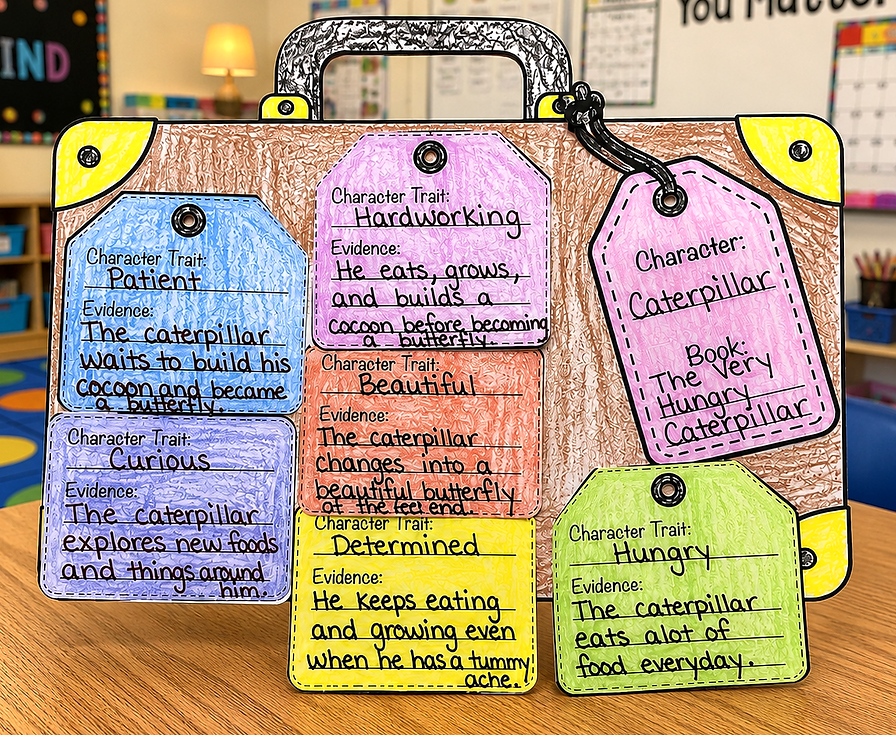 IND
You Matter
Character Trait:
Patient
Evidence:
The caterpillar
waits to build his
cocoon and became
a butterfly.
Character Trait:
Hardworking
Evidence:
He eats, grows,
and builds a
cocoon before becoming
a butterfly.
Character:
Caterpillar
Book:
The Very
Hungry
Caterpillar
Character Trait:
Curious
Evidence:
The caterpillar
explores new foods
and things around
him.
Character Trait:
Beautiful
Evidence:
The caterpillar
changes into a
beautiful butterfly
at the end.
Character Trait:
Determined
Evidence:
He keeps eating
and growing even
when he has a tummy
ache.
Character Trait:
Hungry
Evidence:
The caterpillar
eats alot of
food everyday.